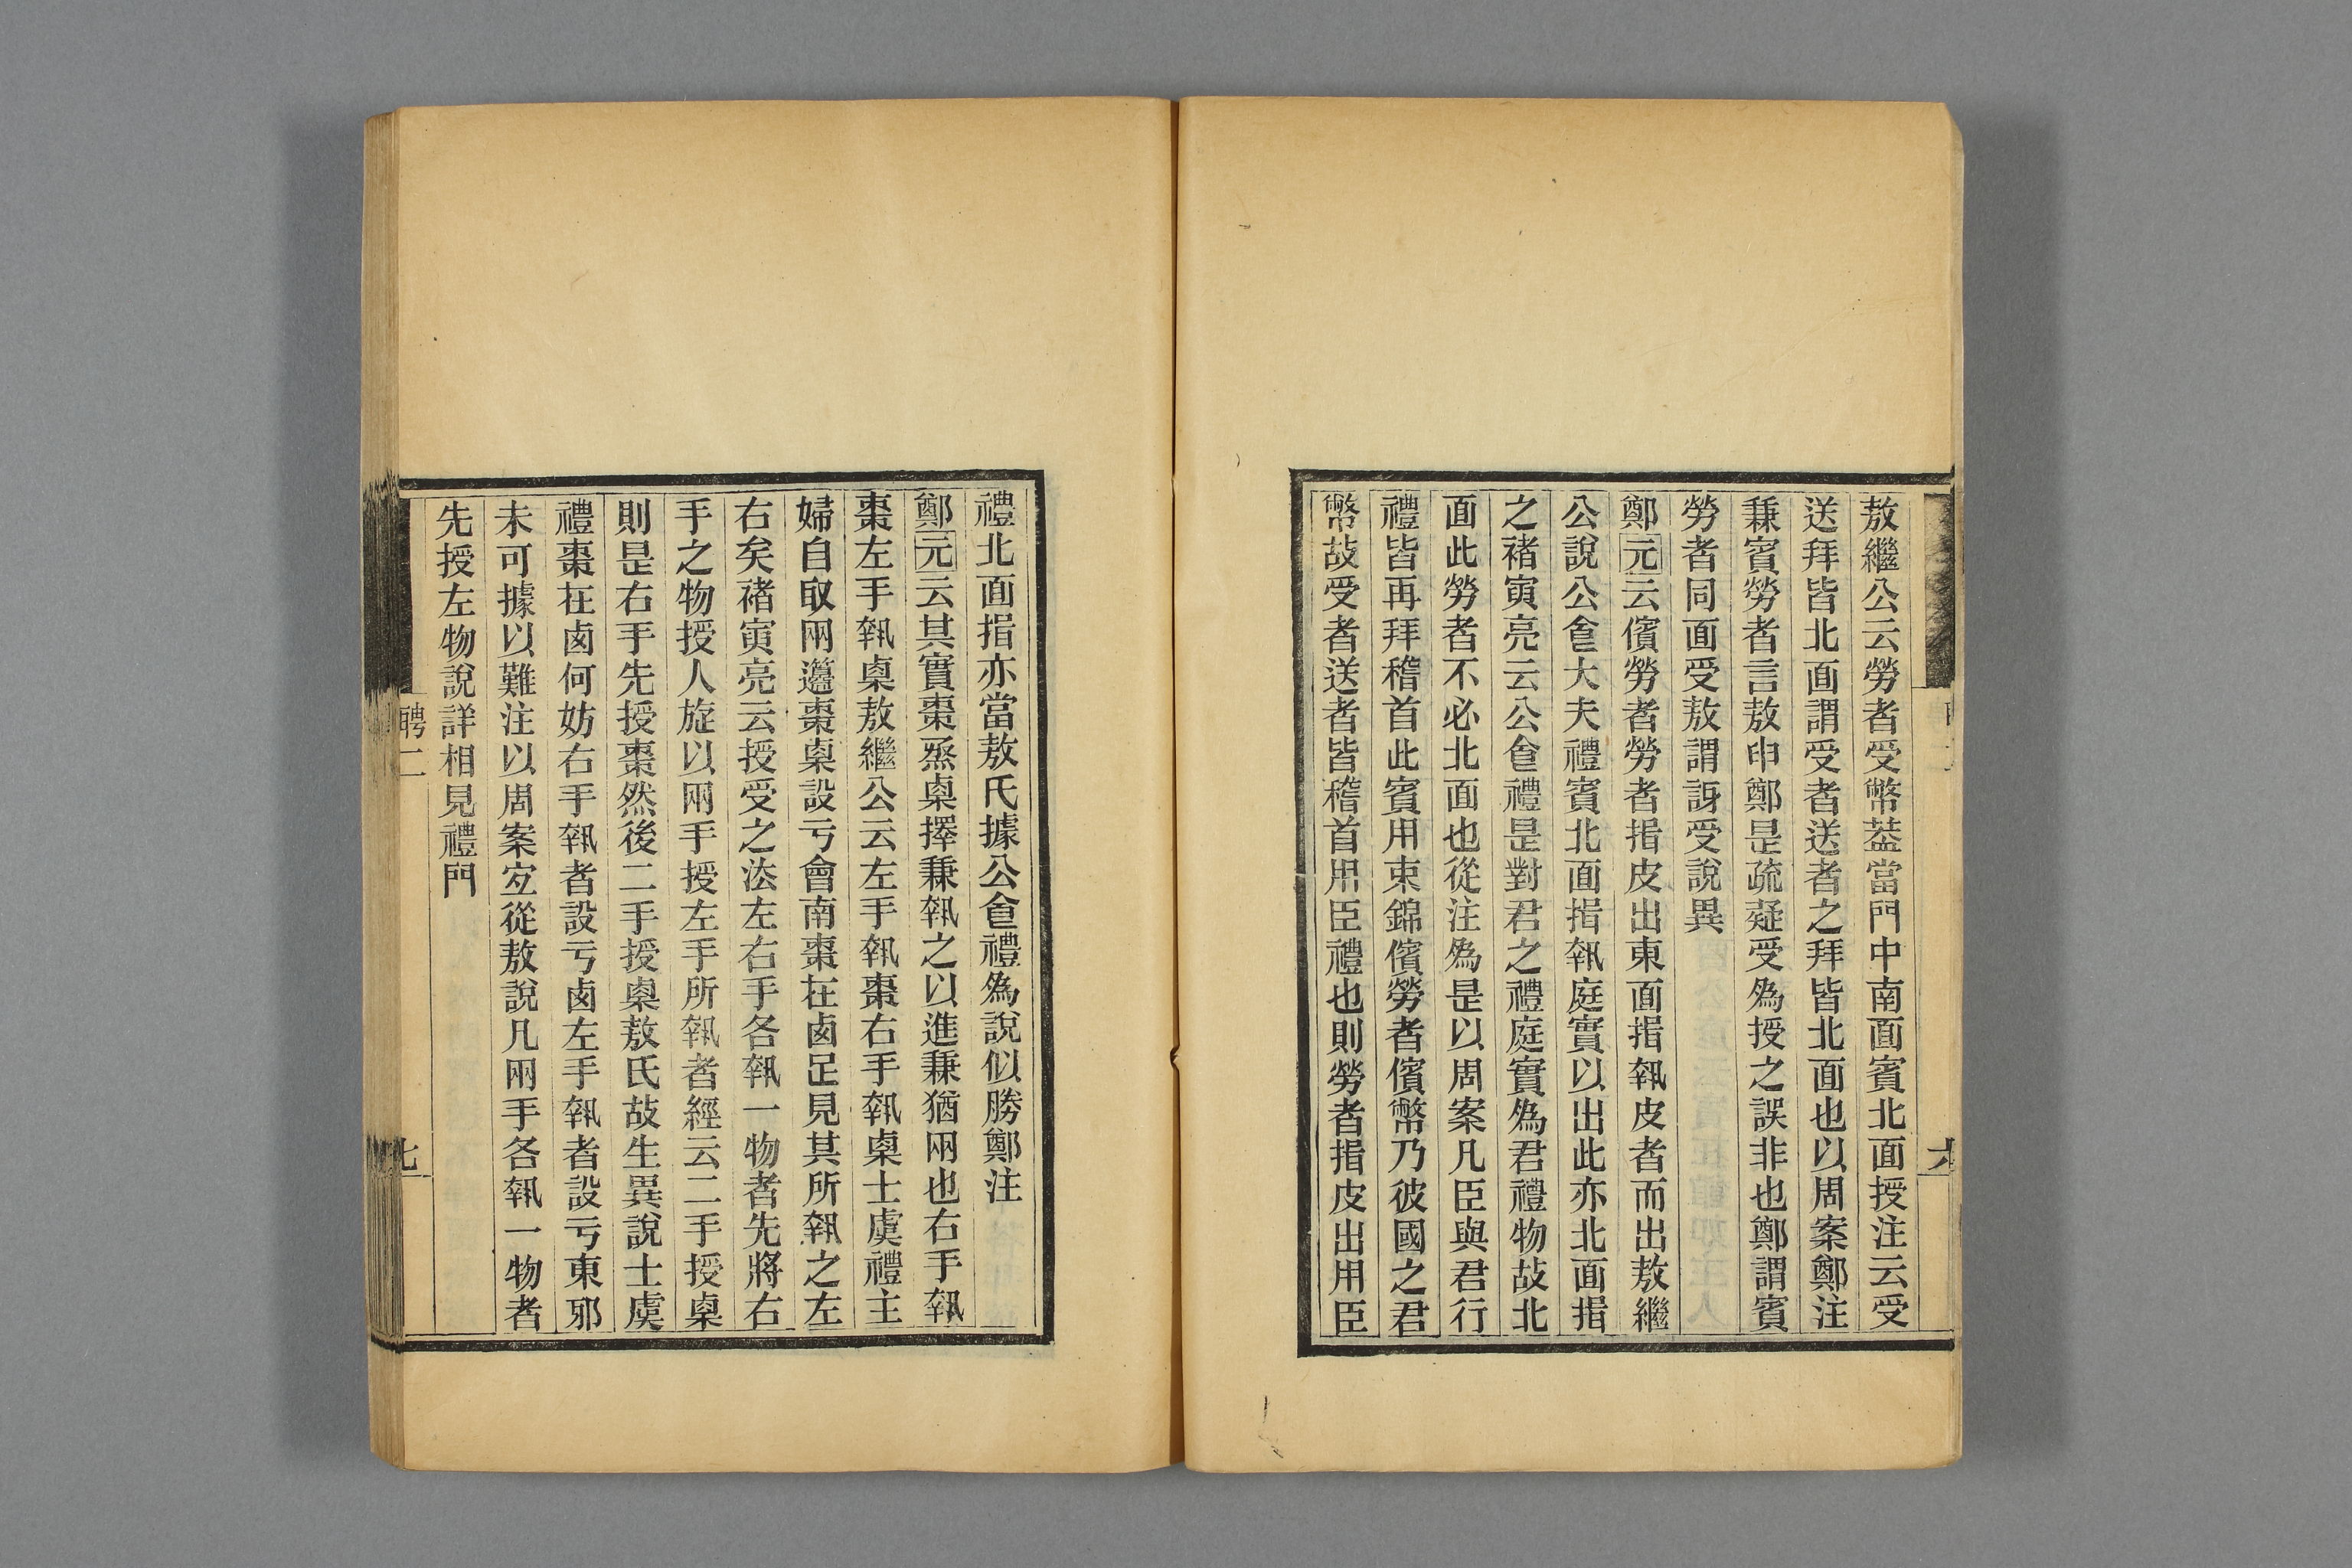 敖繼公云勞者受幣葢當門中南面賓北面授注云受
送拜皆北面謂受者送者之拜皆北面也以周案鄭注
兼賓勞者言敖申鄭是疏疑受爲授之誤非也鄭謂賓
勞者同面受敖謂訝受說異
鄭元云儐勞者勞者揖皮出東面揖執皮者而出敖繼
公說公食大夫禮賓北面揖執庭實以出此亦北面揖
之褚寅亮云公食禮是對君之禮庭實爲君禮物故北
面此勞者不必北面也從注爲是以周案凡臣與君行
禮皆再拜稽首此賓用束錦儐勞者儐幣乃彼國之君
幣故受者送者皆稽首用臣禮也則勞者揖皮出用臣
六
禮北面揖亦當敖氏據公食禮爲說似勝鄭注
鄭元云其實棗烝㮚擇兼執之以進兼猶兩也右手執
棗左手執㮚敖繼公云左手執棗右手執㮚士虞禮主
婦自取兩籩棗㮚設亏會南棗在卤足見其所執之左
右矣褚寅亮云授受之法左右手各執一物者先將右
手之物授人旋以兩手授左手所執者經云二手授㮚
則是右手先授棗然後二手授㮚敖氏故生異說士虞
禮棗在卤何妨右手執者設亏卤左手執者設亏東邪
未可據以難注以周案宐從敖說凡兩手各執一物者
先授左物說詳相見禮門
聘二
七